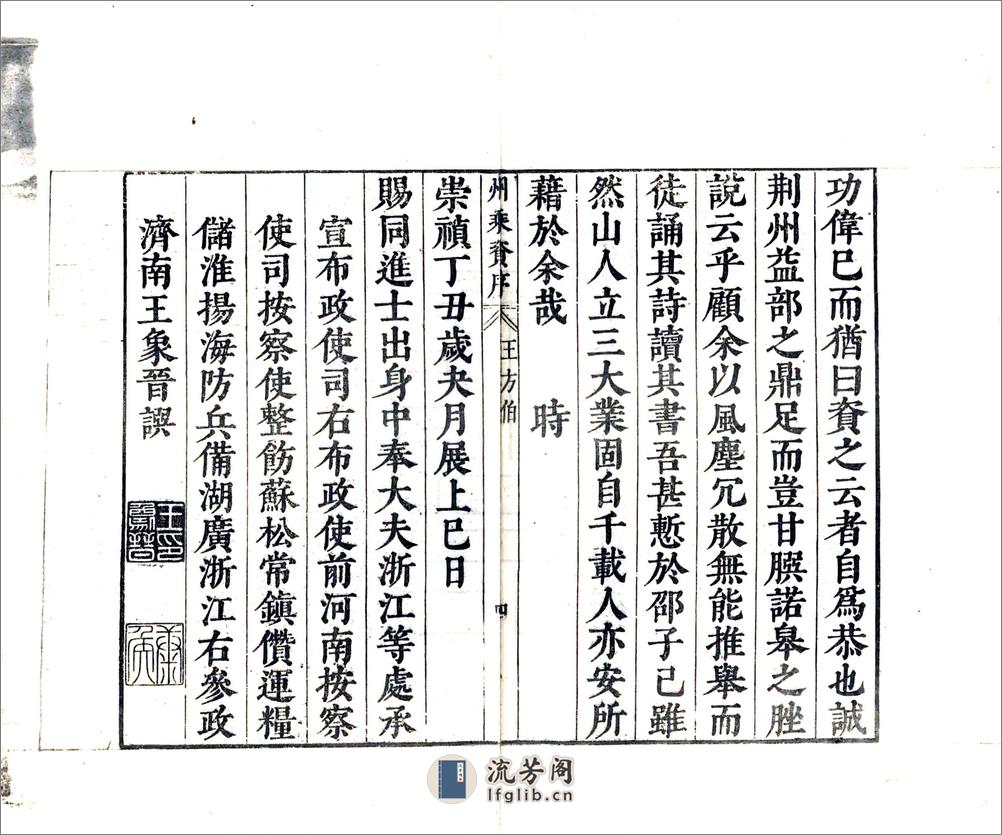 功偉已而猶曰資之云者自爲恭也誠
荆州益部之鼎足而豈甘臊諾皋之脞
說云乎顧余以風塵冗散無能推舉而
徒誦其詩讀其書吾甚慙於邵子已雖
然山人立三大業固自千載人亦安所
藉於余哉 時
州乘資序 王方伯 四
崇禎丁丑歲夬月展上巳日
賜同進士出身中奉大夫浙江等處承
宣布政使司右布政使前河南按察
使司按察使整飭蘇松常鎮儹運糧
儲淮揚海防兵備湖廣浙江右參政
濟南王象晉譔
王象晉印
流芳阁
lfglib.cn